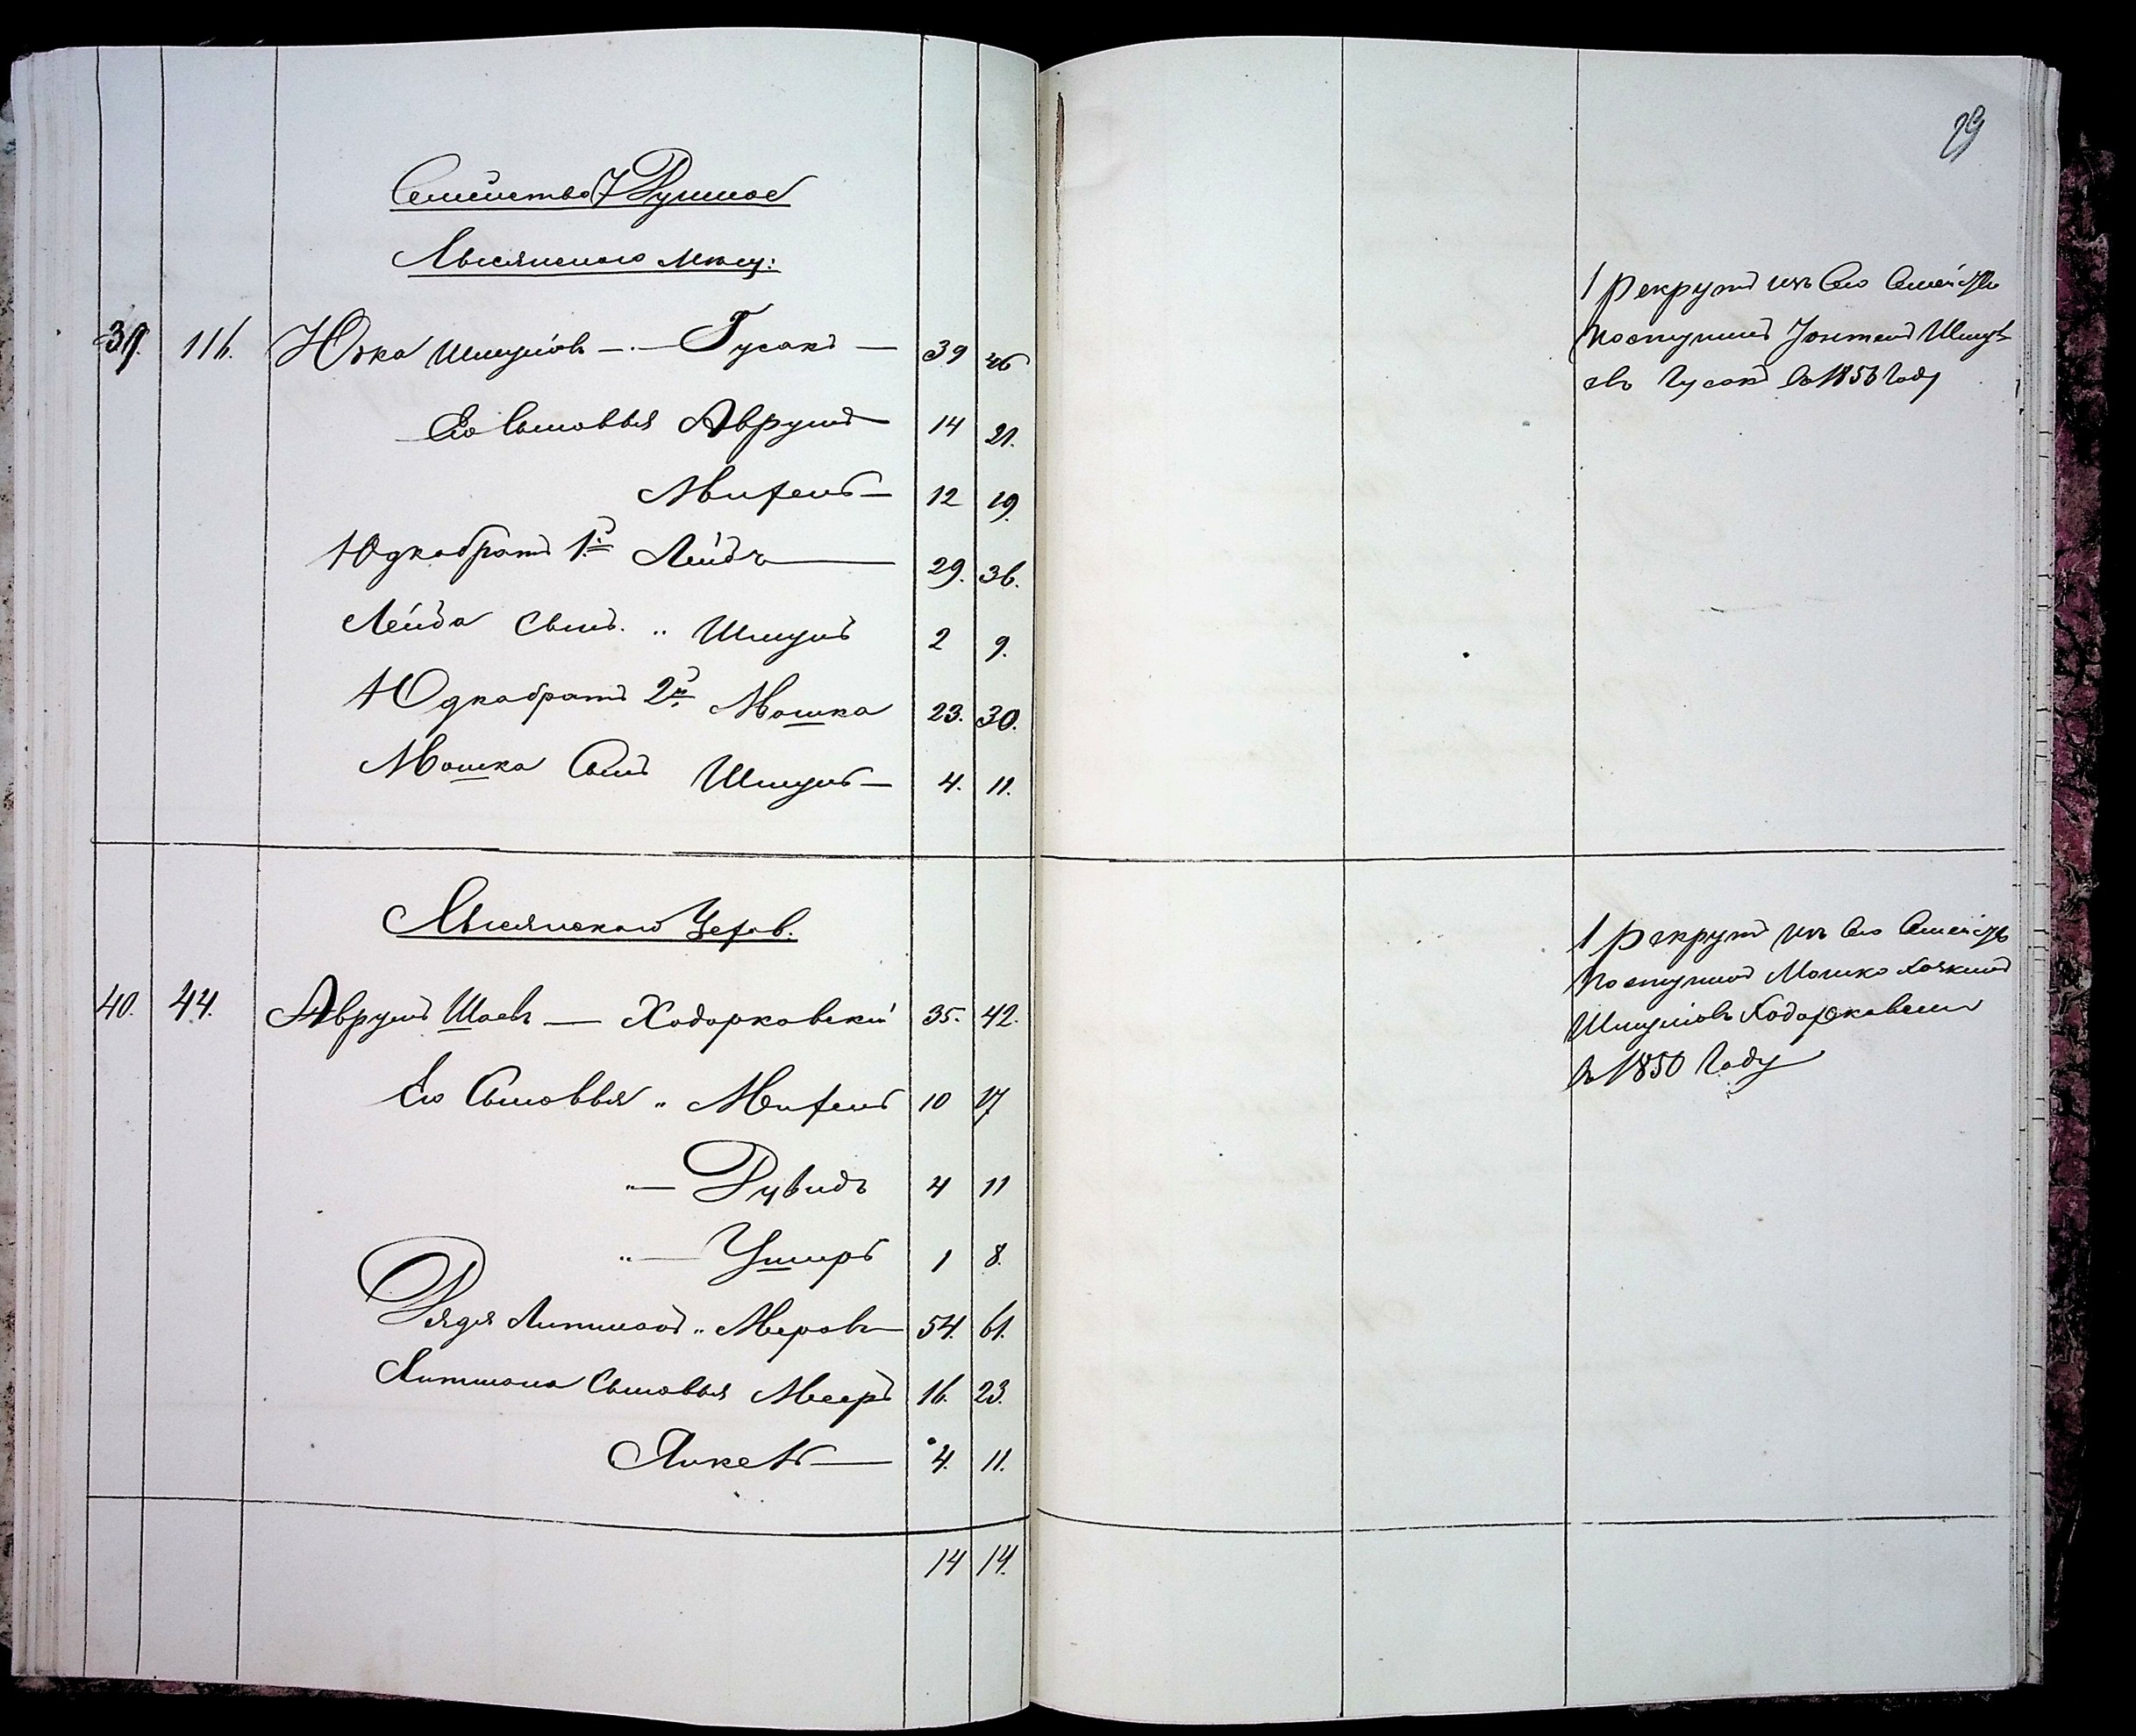 29
Семейство 7 Душное
Лысянского мѣщ:
39. 116. Юдка Шмулiовъ —.— Гусакъ — 39 46
Его Сыновья Аврумъ — 14 21.
Михель — 12 19.
Юдка братъ 1й Лейба — 29. 36.
Лейба Сынъ. „ Шмуль 2 9.
Юдка братъ 2й Мошка 23. 30.
Мошка Сынъ Шмуль — 4. 11.
1 рекрутъ изъ Его Семейства
поступилъ Юнтель Шмул
овъ Гусакъ въ 1856 году
Лысянскаго
40. 44. Аврумъ Шаевъ — Ходорковскiй 35. 42.
Его Сыновья „ Михель 10 17
„— Рувинъ 4 11
„— Ушеръ 1 8.
Дядя Литманъ „ Меровъ — 54. 61.
Литмана Сыновья Мееръ 16. 23.
Янкель — 4. 11.
1 рекрутъ изъ Его Семейства
поступилъ Мошко
Шмулiовъ Ходорковскiй
въ 1850 году
14 14.